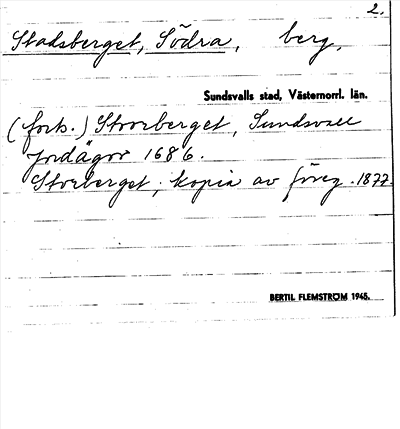 2.
Stadsberget, Södra, berg.
Sundsvalls stad, Västernorrl. län.
(forts.) Storberget, Sundsvall
Jordägor 1686.
Storberget, kopia av föreg. 1877.
BERTIL FLEMSTRÖM 1945.